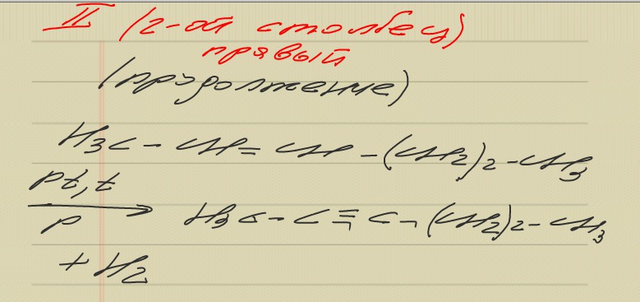 II (2-ой столбец)
прявый
(продолжение)
H3C - CH = CH - (CH2)2 - CH3
Pt, t
P
⟶ H3C - C ≡ C - (CH2)2 - CH3
+ H2